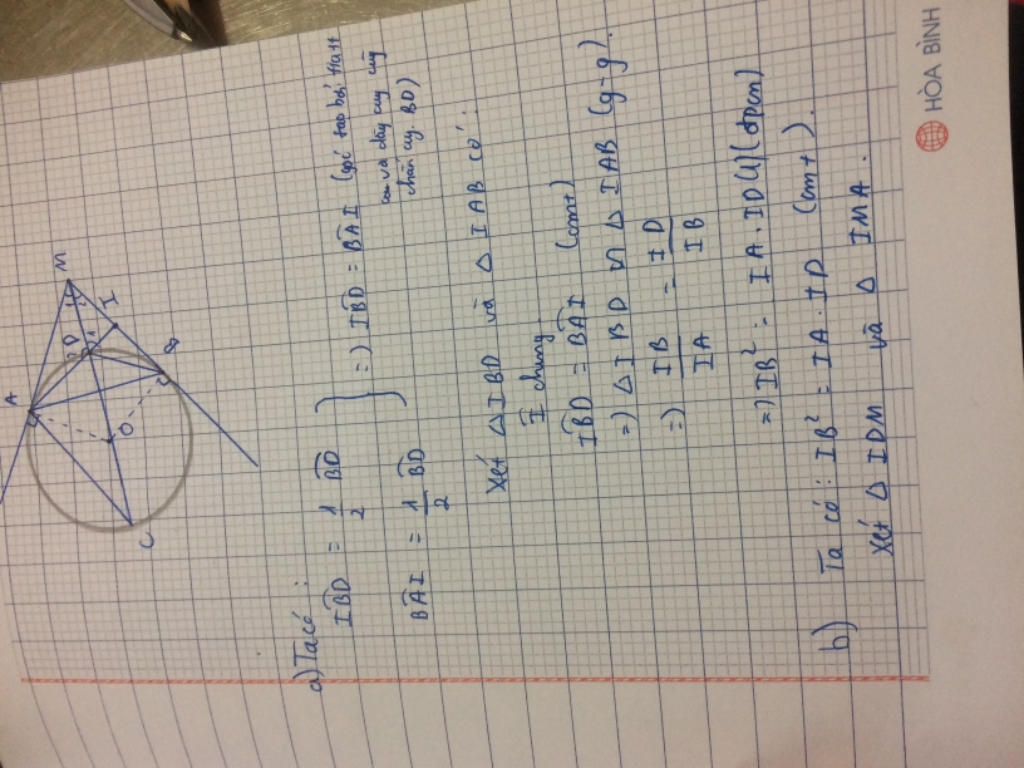 A
M
D
I
B
O
C
a) Ta có :
IBD = 1/2 BD
BAI = 1/2 BD
=) IBD = BAI (góc tạo bởi tia tt
và dây cung cùng
chắn cung BD)
Xét △ IBD và △ IAB có :
I chung
IBD = BAI (cmt)
=) △ IBD ∽ △ IAB (g-g).
=) IB/IA = ID/IB
=) IB² = IA . ID (1) (đpcm)
b) Ta có : IB² = IA . ID (cmt).
Xét △ IDM và △ IMA .
HÒA BÌNH